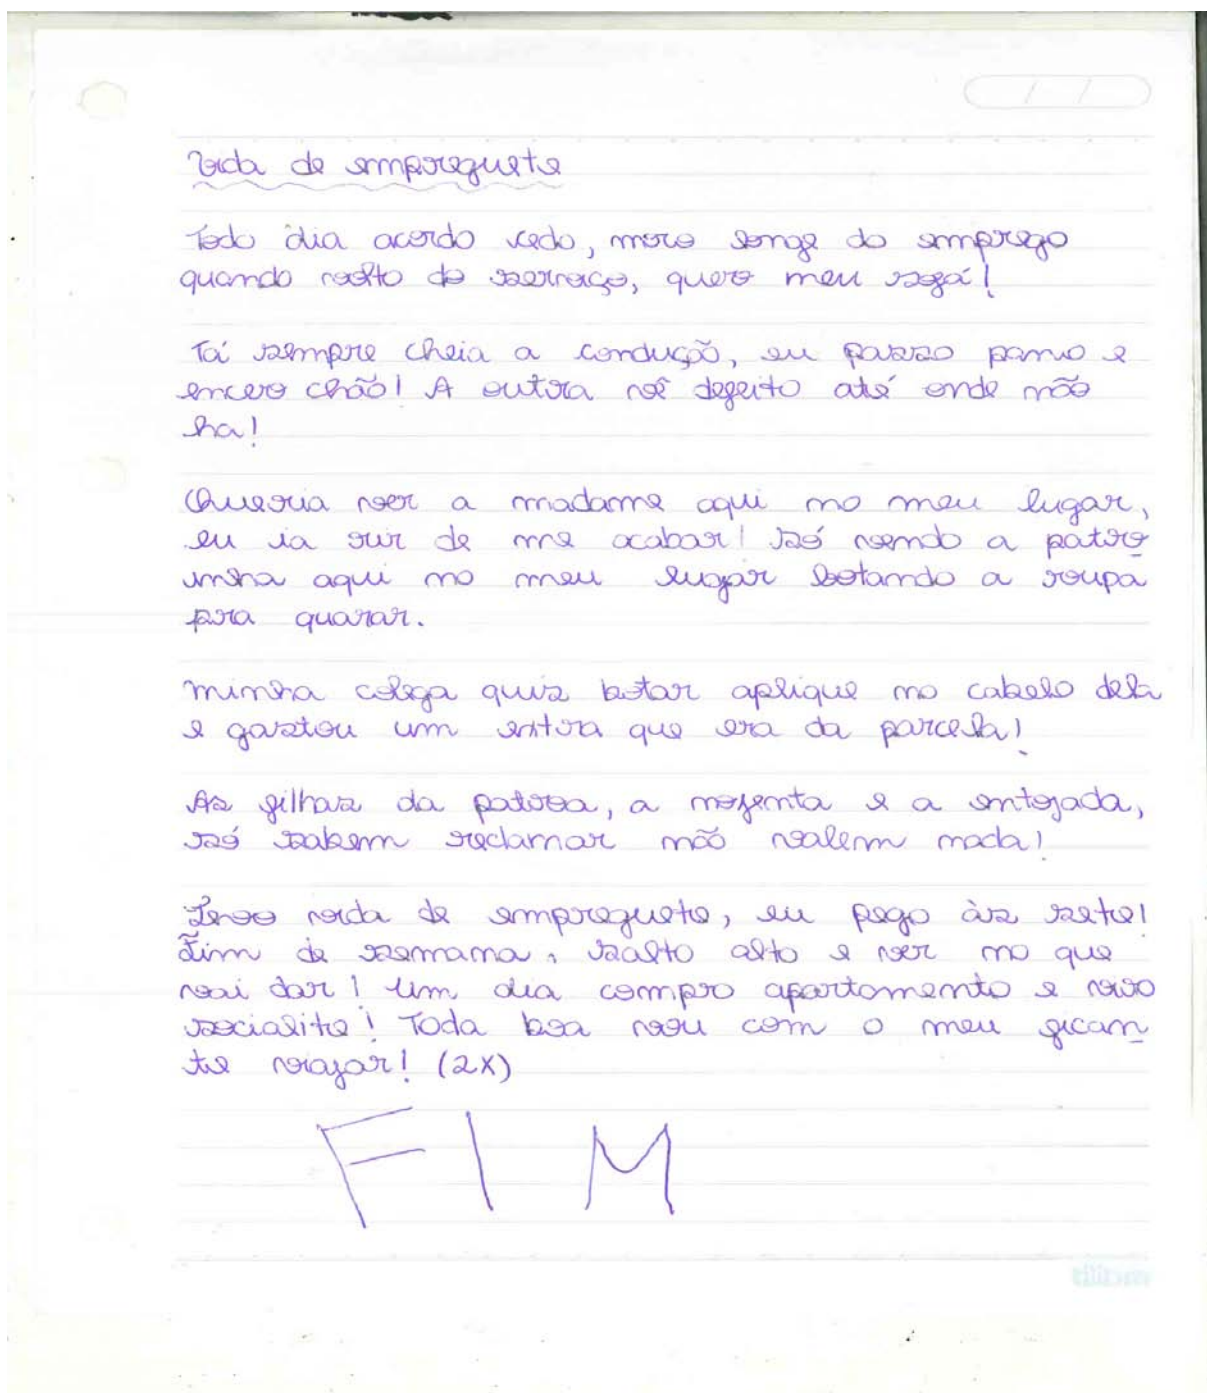 Vida de empreguete
Todo dia acordo cedo, moro longe do emprego
quando volto do serviço, quero meu sofá!
Tá sempre cheia a condução, eu passo pano e
encero chão! A outra vê defeito até onde não
ha!
Queria ver a madame aqui no meu lugar,
eu ia rir de me acabar! Só vendo a patro
inha aqui no meu lugar botando a roupa
pra quarar.
minha colega quis botar aplique no cabelo dela
e gastou um extra que era da parcela!
As filhas da patroa, a nojenta e a entojada,
só sabem reclamar não valem nada!
Levo vida de empreguete, eu pego às sete!
Fim de semana, salto alto e ver no que
vai dar! Um dia compro apartamento e viro
socialite! Toda boa vou com o meu fican
te viajar! (2X)
FIM
tilibra